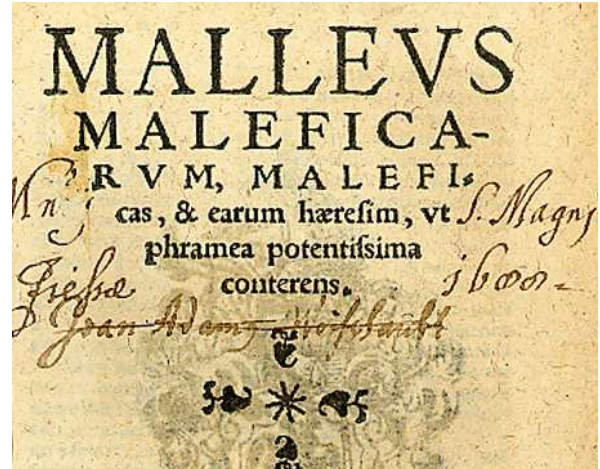 MALLEVS
MALEFICA-
RVM, MALEFI-
cas, & earum hæreſim, vt
phramea potentiſsima
conterens.
S. Magnj
1688
Joan Adamg